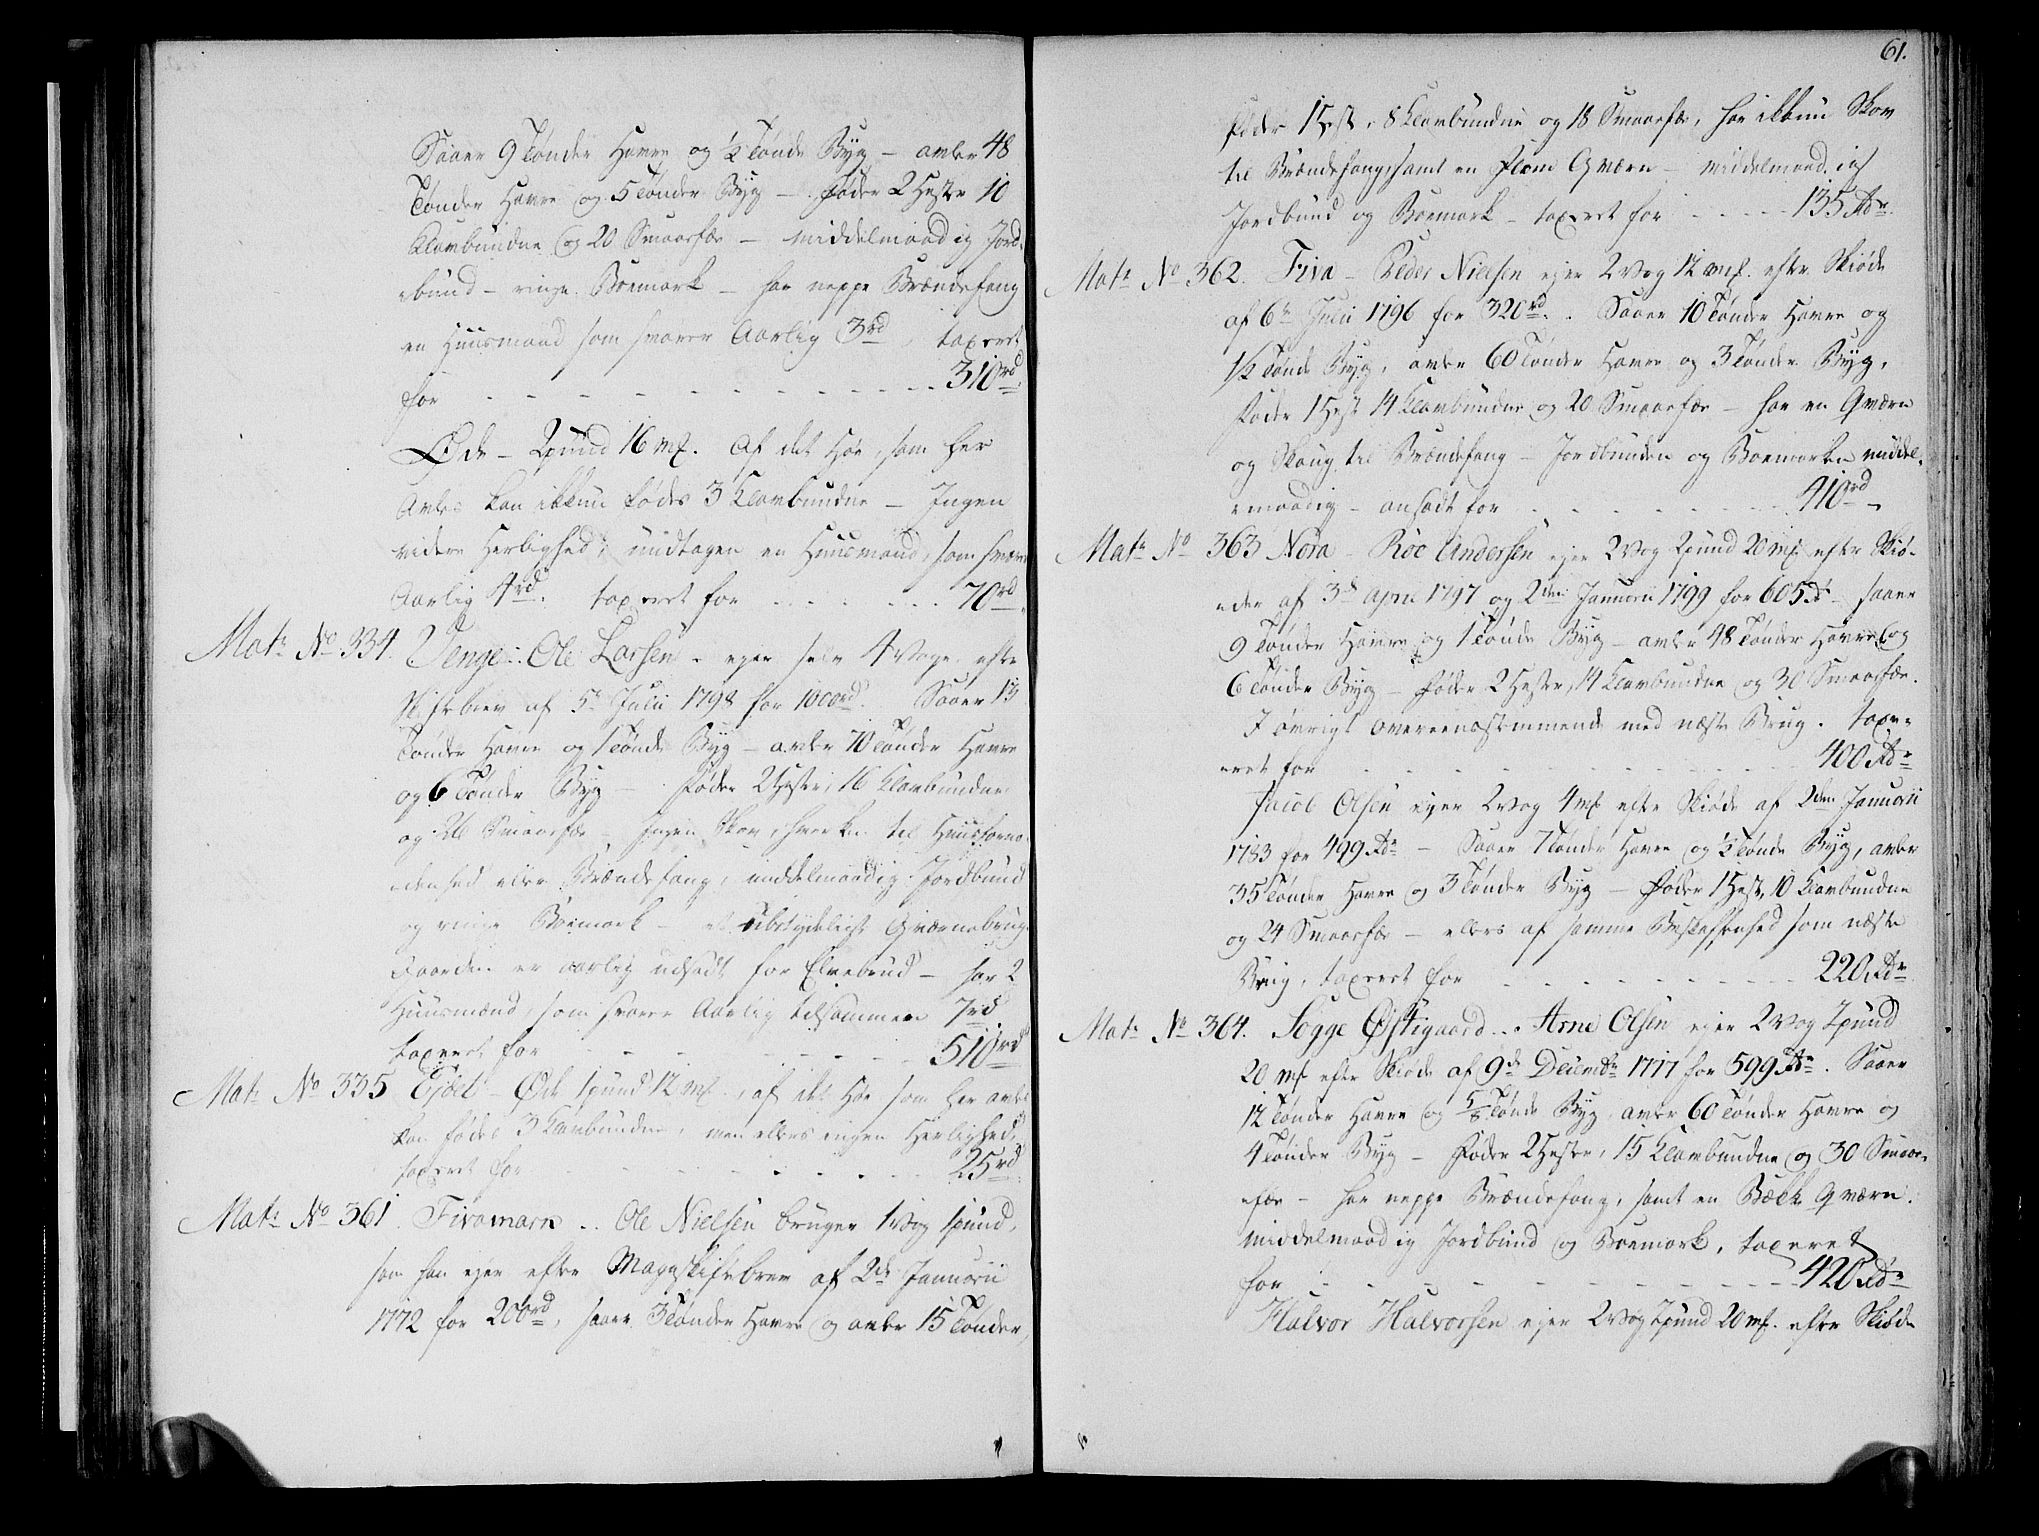 Saaer 9 Tønder Havre og ½ Tønde Byg – avler 48
Tønder Havre og 5 Tønder Byg – føder 2 Heste 10
Klovbundne og 20 Smaafæ – middelmaadig Jord-
bund – ringe Boemark – har neppe Brændefang
en Huusmand som svarer Aarlig 3rd, taxeret
for - - - - - - 310rd.
Øde – 2 pund 16 mk. Af det Høe, som her
Avles kan ikkun fødes 3 Klovbundne – Ingen
videre Herlighed, undtagen en Huusmand, som svarer
Aarlig 4rd. taxeret for - - - - 70rd.
Matr No 334. Tenge. Ole Larsen. ejer selv 4 Voge. efter
Skifebrev af 5t Julii 1798 for 1000rd. Saaer 13
Tønder Havre og 1 Tønde Byg – avler 70 Tønder Havre
og 6 Tønder Byg – føder 2 Heste, 16 Klovbundne
og 26 Smaafæ – Ingen Skov, hverken til Huusforno-
denhed eller Brændefang, middelmaadig Jordbund
og ringe Boemark – et ubetydeligt Qværnebrug.
Gaarden er aarlig udsadt for Elvebrud – har 2
Huusmænd, som svarer Aarlig tilsammen 7rd
taxeret for - - - - - 510rd
Matr No 335 – Øde 1 pund 12 mk., af det Høe som her avles
kan fødes 3 Klovbundne, men ellers ingen Herlighed,
taxeret for - - - - - 25rd.
Matr No 361. Fivamarn .. Ole Nielsen bruger 1 Vog 1 pund,
som han ejer efter Mageskifebrev af 2de Januarii
1772 for 200rd, saaer 3 Tønder Havre og avler 15 Tønder,
61.
føder 1 Hest, 8 Klovbundne og 18 Smaafæ, har ikkun Skov
til Brændefang samt en Flom Qværn – middelmaadig
Jordbund og Boemark – taxeret for - - - - 135 Rdr.
Matr No 362. Fiva – Peder Nielsen ejer 2 Vog 12 mk. efter Skiøde
af 6te Julii 1796 for 320rd. Saaer 10 Tønder Havre og
½ Tønde Byg, avler 60 Tønder Havre og 3 Tønder Byg,
føder 1 Hest 14 Klovbundne og 20 Smaafæ – har en Qværn
og Skoug til Brændefang – Jordbunden og Boemarken middel-
maadig – ansadt for - - - - - 410rd.
Matr No 363 Nora – Roe Andersen ejer 2 Vog 2 pund 20 mk efter Skiø-
der af 3de April 1797 og 2den Januarii 1799 for 605 Rd – saaer
9 Tønder Havre og 1 Tønde Byg – avler 48 Tønder Havre og
6 Tønder Byg – føder 2 Heste, 14 Klovbundne og 30 Smaafæ.
I øvrigt overeensstemmende med næste Brug. taxe-
ret for - - - - - - 400 Rdr
Jacob Olsen ejer 2 Vog 4 mk efter Skiøde af 2den Januarii
1783 for 499 Rdr – Saaer 7 Tønder Havre og ½ Tønde Byg, avler
35 Tønder Havre og 3 Tønder Byg – føder 1 Hest, 10 Klovbundne
og 24 Smaafæ – ellers af samme Beskaffenhed som næste
Brug, taxeret for - - - - - 220 Rdr
Matr No 364. Sogge Østigaard .. Arne Olsen ejer 2 Vog 2 pund
20 mk efter Skiøde af 9de Decembr 1777 for 599 Rdr. Saaer
12 Tønder Havre og 5/8 Tønde Byg, avler 60 Tønder Havre og
4 Tønder Byg – føder 2 Heste, 15 Klovbundne og 30 Smaa-
fæ – har neppe Brændefang, samt en Bæk Qværn.
middelmaadig Jordbund og Boemark, taxeret
for - - - - - - 420 Rdr
Halvor Halvorsen ejer 2 Vog 2 pund 20 mk. efter Skiøde